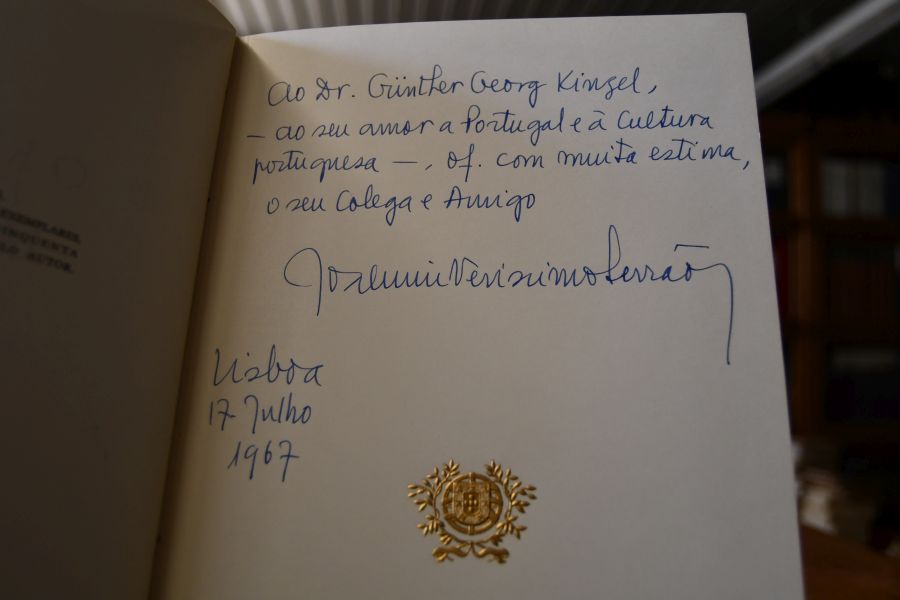 EXEMPLARES,
INQUENTA
LO AUTOR.
Ao Dr. Günther Georg Kinzel,
– ao seu amor a Portugal e à Cultura
portuguesa –, of. com muita estima,
o seu Colega e Amigo
Joaquim Veríssimo Serrão
Lisboa
17 Julho
1967